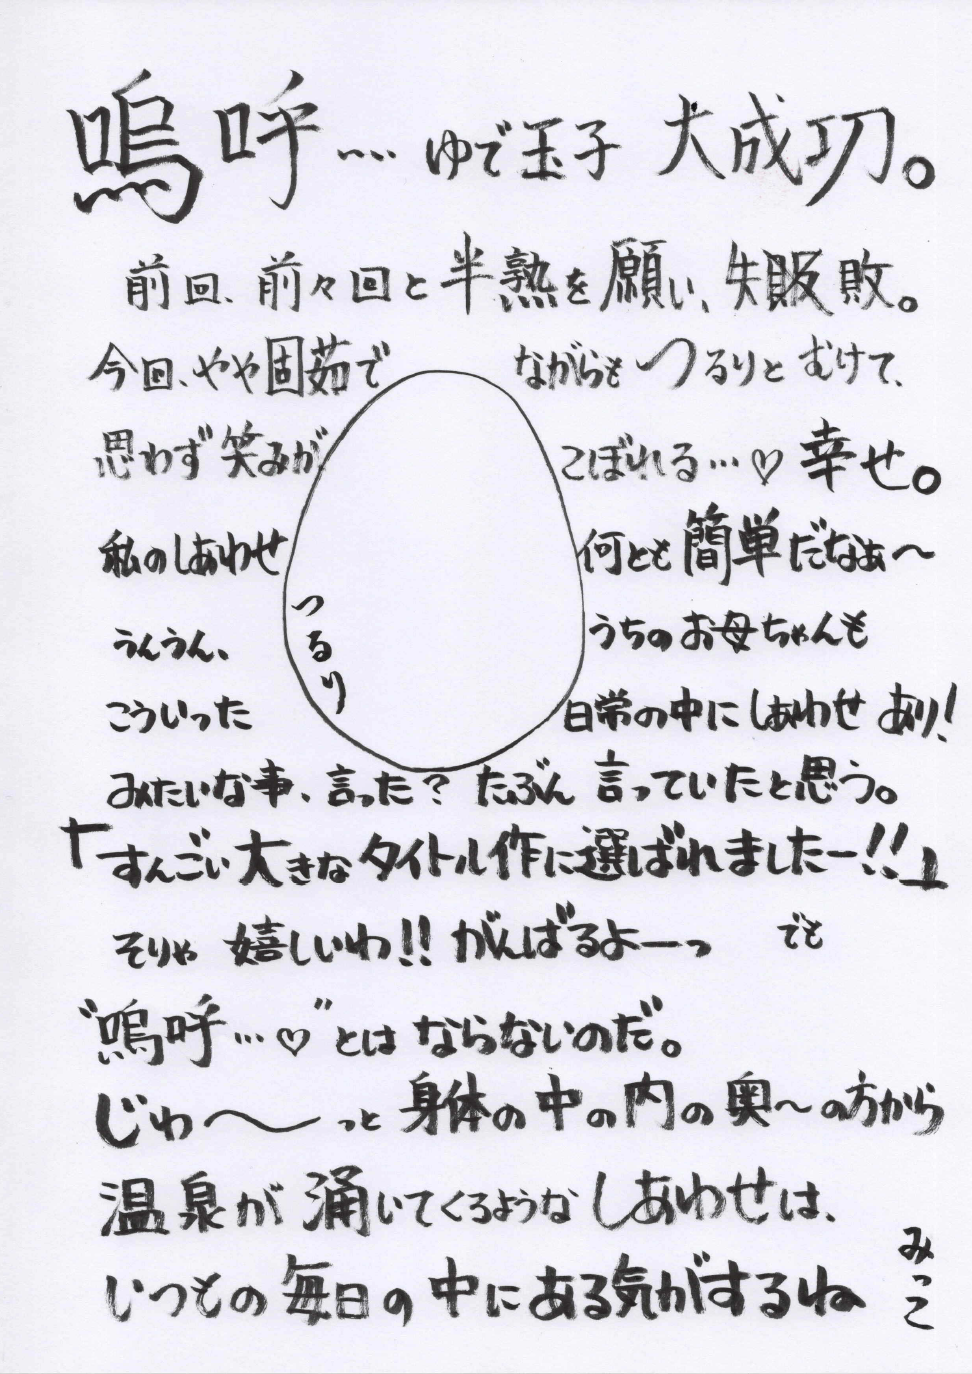 嗚呼… ゆで玉子 大成功。
前回、前々回と半熟を願い、失敗敗。
今回、やや固茹で ながらも つるりと むけて、
思わず笑みが こぼれる…♡ 幸せ。
私のしあわせ 何とも簡単だなぁ〜
うんうん、 うちのお母ちゃんも
こういった 日常の中にしあわせ あり!
つるり
みたいな事、言った? たぶん 言っていたと思う。
「すんごい大きなタイトル作に選ばれましたー!!」
そりゃ 嬉しいわ!! がんばるよーっ でも
“嗚呼…♡”とは ならないのだ。
じわ〜っと 身体の中の内の奥〜の方から
温泉が 涌いてくるような しあわせは、
いつもの 毎日の中にある気がするね
みっこ